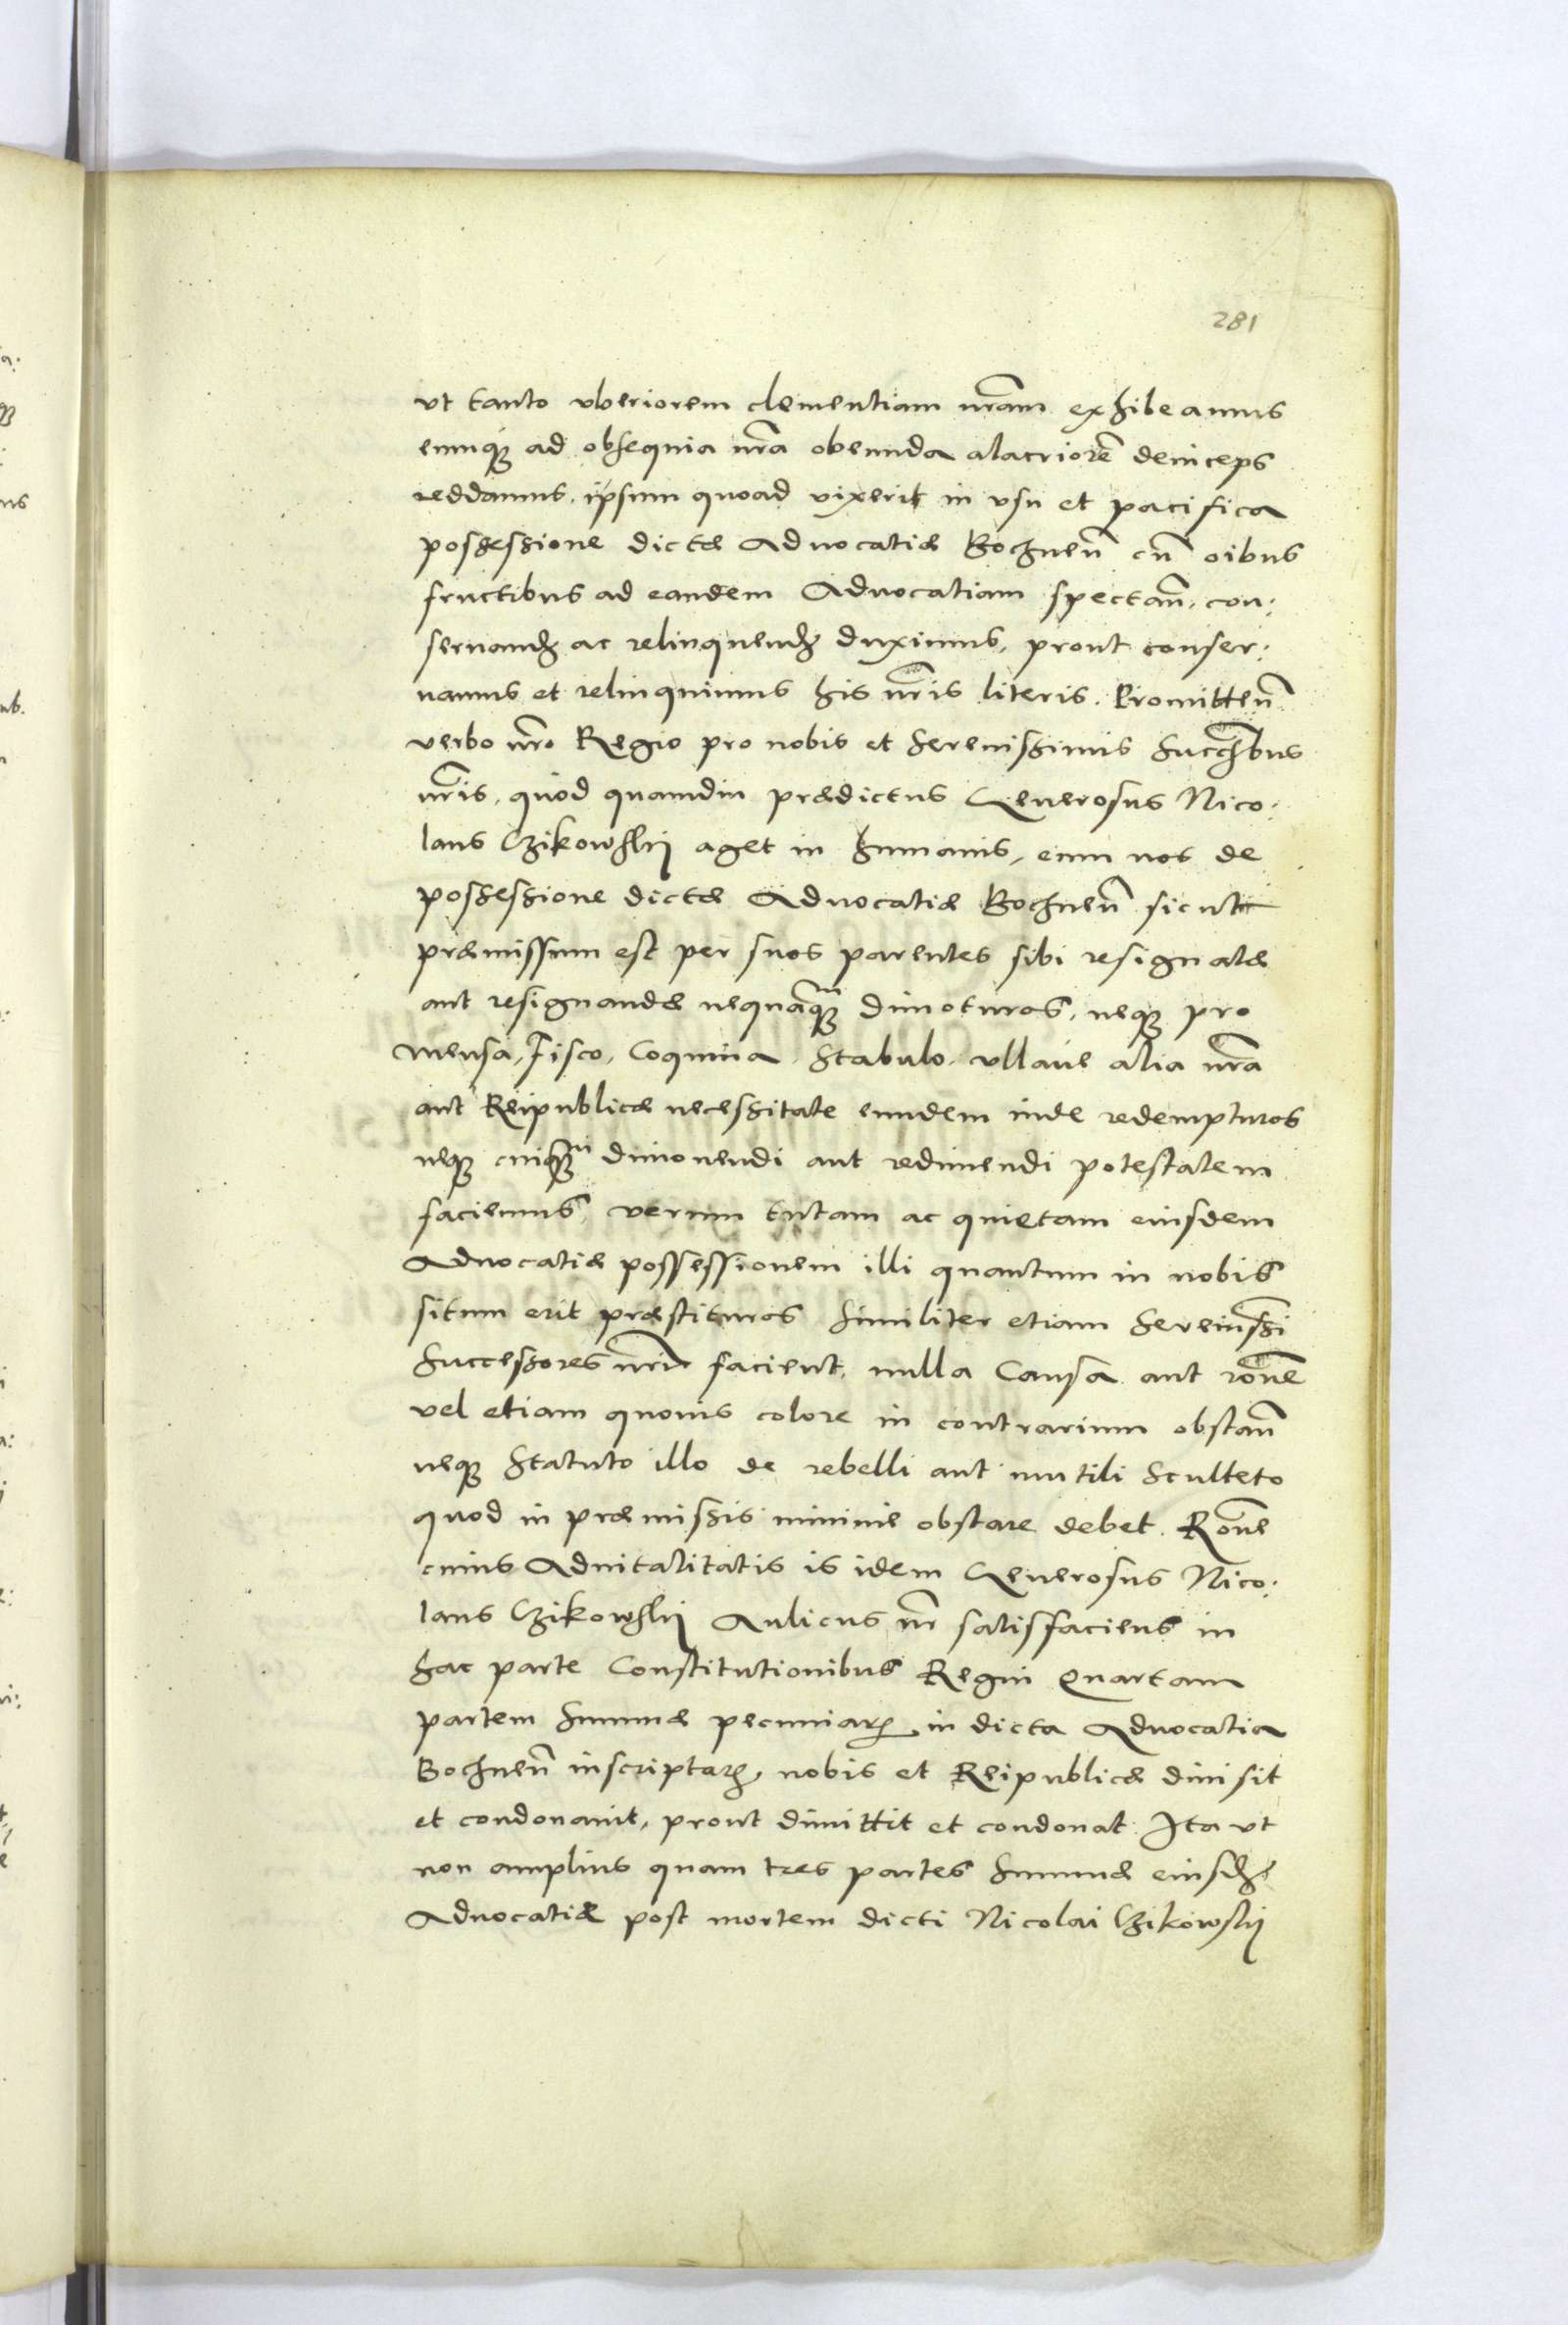 281
vt tanto vberiorem clementiam nram exhibeamus
eumq3 ad obsequia nra obeunda alacriorē deinceps
reddamus. ipsum quoad vixerit in vsu et pacifica
possessione dictæ Aduocatiæ Bochneñ cū oibus
fructibus ad eandem Aduocatiam spectañ. con:
seruand3 ac relinquend3 duximus, prout conser:
uamus et relinquimus his nris literis. Promitteñ
verbo nro Regio pro nobis et Serenissimis Succribus
nris. quòd quamdiu prædictus Generosus Nico:
laus Czikowskij aget in humanis, eum nos de
possessione dictæ Aduocatiæ Bochneñ sicut
præmissum est per suos parentes sibi resignatæ
aut resignandæ nequaq3m dimoturos, neq3 pro
mensa, Fisco, Coquina, Stabulo, vllaue alia nra
aut Reipublicæ necessitate eundem inde redempturos
neq3 cuiq3m dimouendi aut redimendi potestatem
faciemus, verum tutam ac quietam eiusdem
Aduocatiæ possessionem illi quantum in nobis
situm erit præstituros Similiter etiam Serenissi
Successores nri facient, nulla Causa aut rone
vel etiam quouis colore in contrarium obstañ
neq3 Statuto illo de rebelli aut inutili Sculteto
quod in præmissis minime obstare debet. Rone
cuius Aduitalitatis is idem Generosus Nico:
laus Czikowskij Aulicus nr satisfaciens in
hac parte Constitutionibus Regni Quartam
partem Summæ pecuniarꝝ in dicta Aduocatia
Bochneñ inscriptarꝝ, nobis et Reipublicæ dimisit
et condonauit, prout dimittit et condonat. Ita vt
non amplius quam tres partes Summæ eiusd3
Aduocatiæ post mortem dicti Nicolai Czikowskij